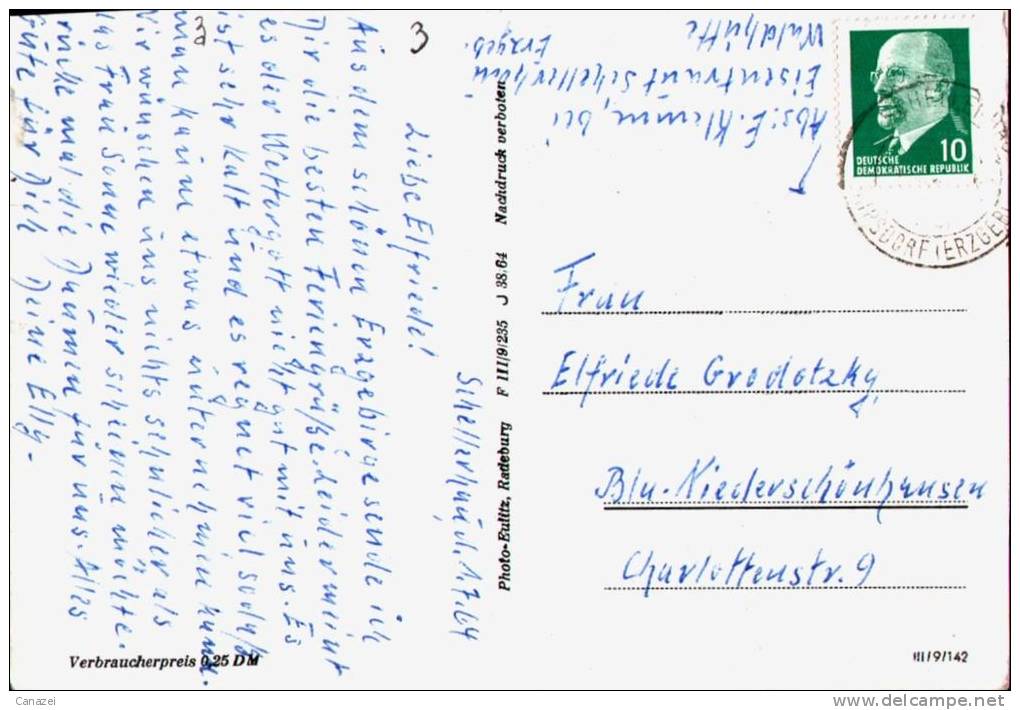 3
3
Schellerhau, d. 1.7.64
Liebe Elfriede!
Aus dem schönen Erzgebirge sende ich
Dir die besten Feriengrüße. Leider meint
es der Wettergott nicht gut mit uns. Es
ist sehr kalt und es regnet viel sodaß
man kaum etwas unternehmen kann.
Wir wünschen uns nichts sehnlicher als
das Frau Sonne wieder scheinen möchte.
Drücke mal die Daumen für uns. Alles
Gute für Dich Deine Elly.
Verbraucherpreis 0,25 DM
Photo-Eulitz, Radeburg F III/9/235 J 38/64 Nachdruck verboten
Abs: E. Klemm, bei
Eisentraut Schellerhau
Waldhütte Erzgeb.
DEUTSCHE
DEMOKRATISCHE REPUBLIK
10
(ERZGEB)
Frau
Elfriede Grodotzky
Bln-Niederschönhausen
Charlottenstr. 9
III/9/142
Canazei
www.delcampe.net